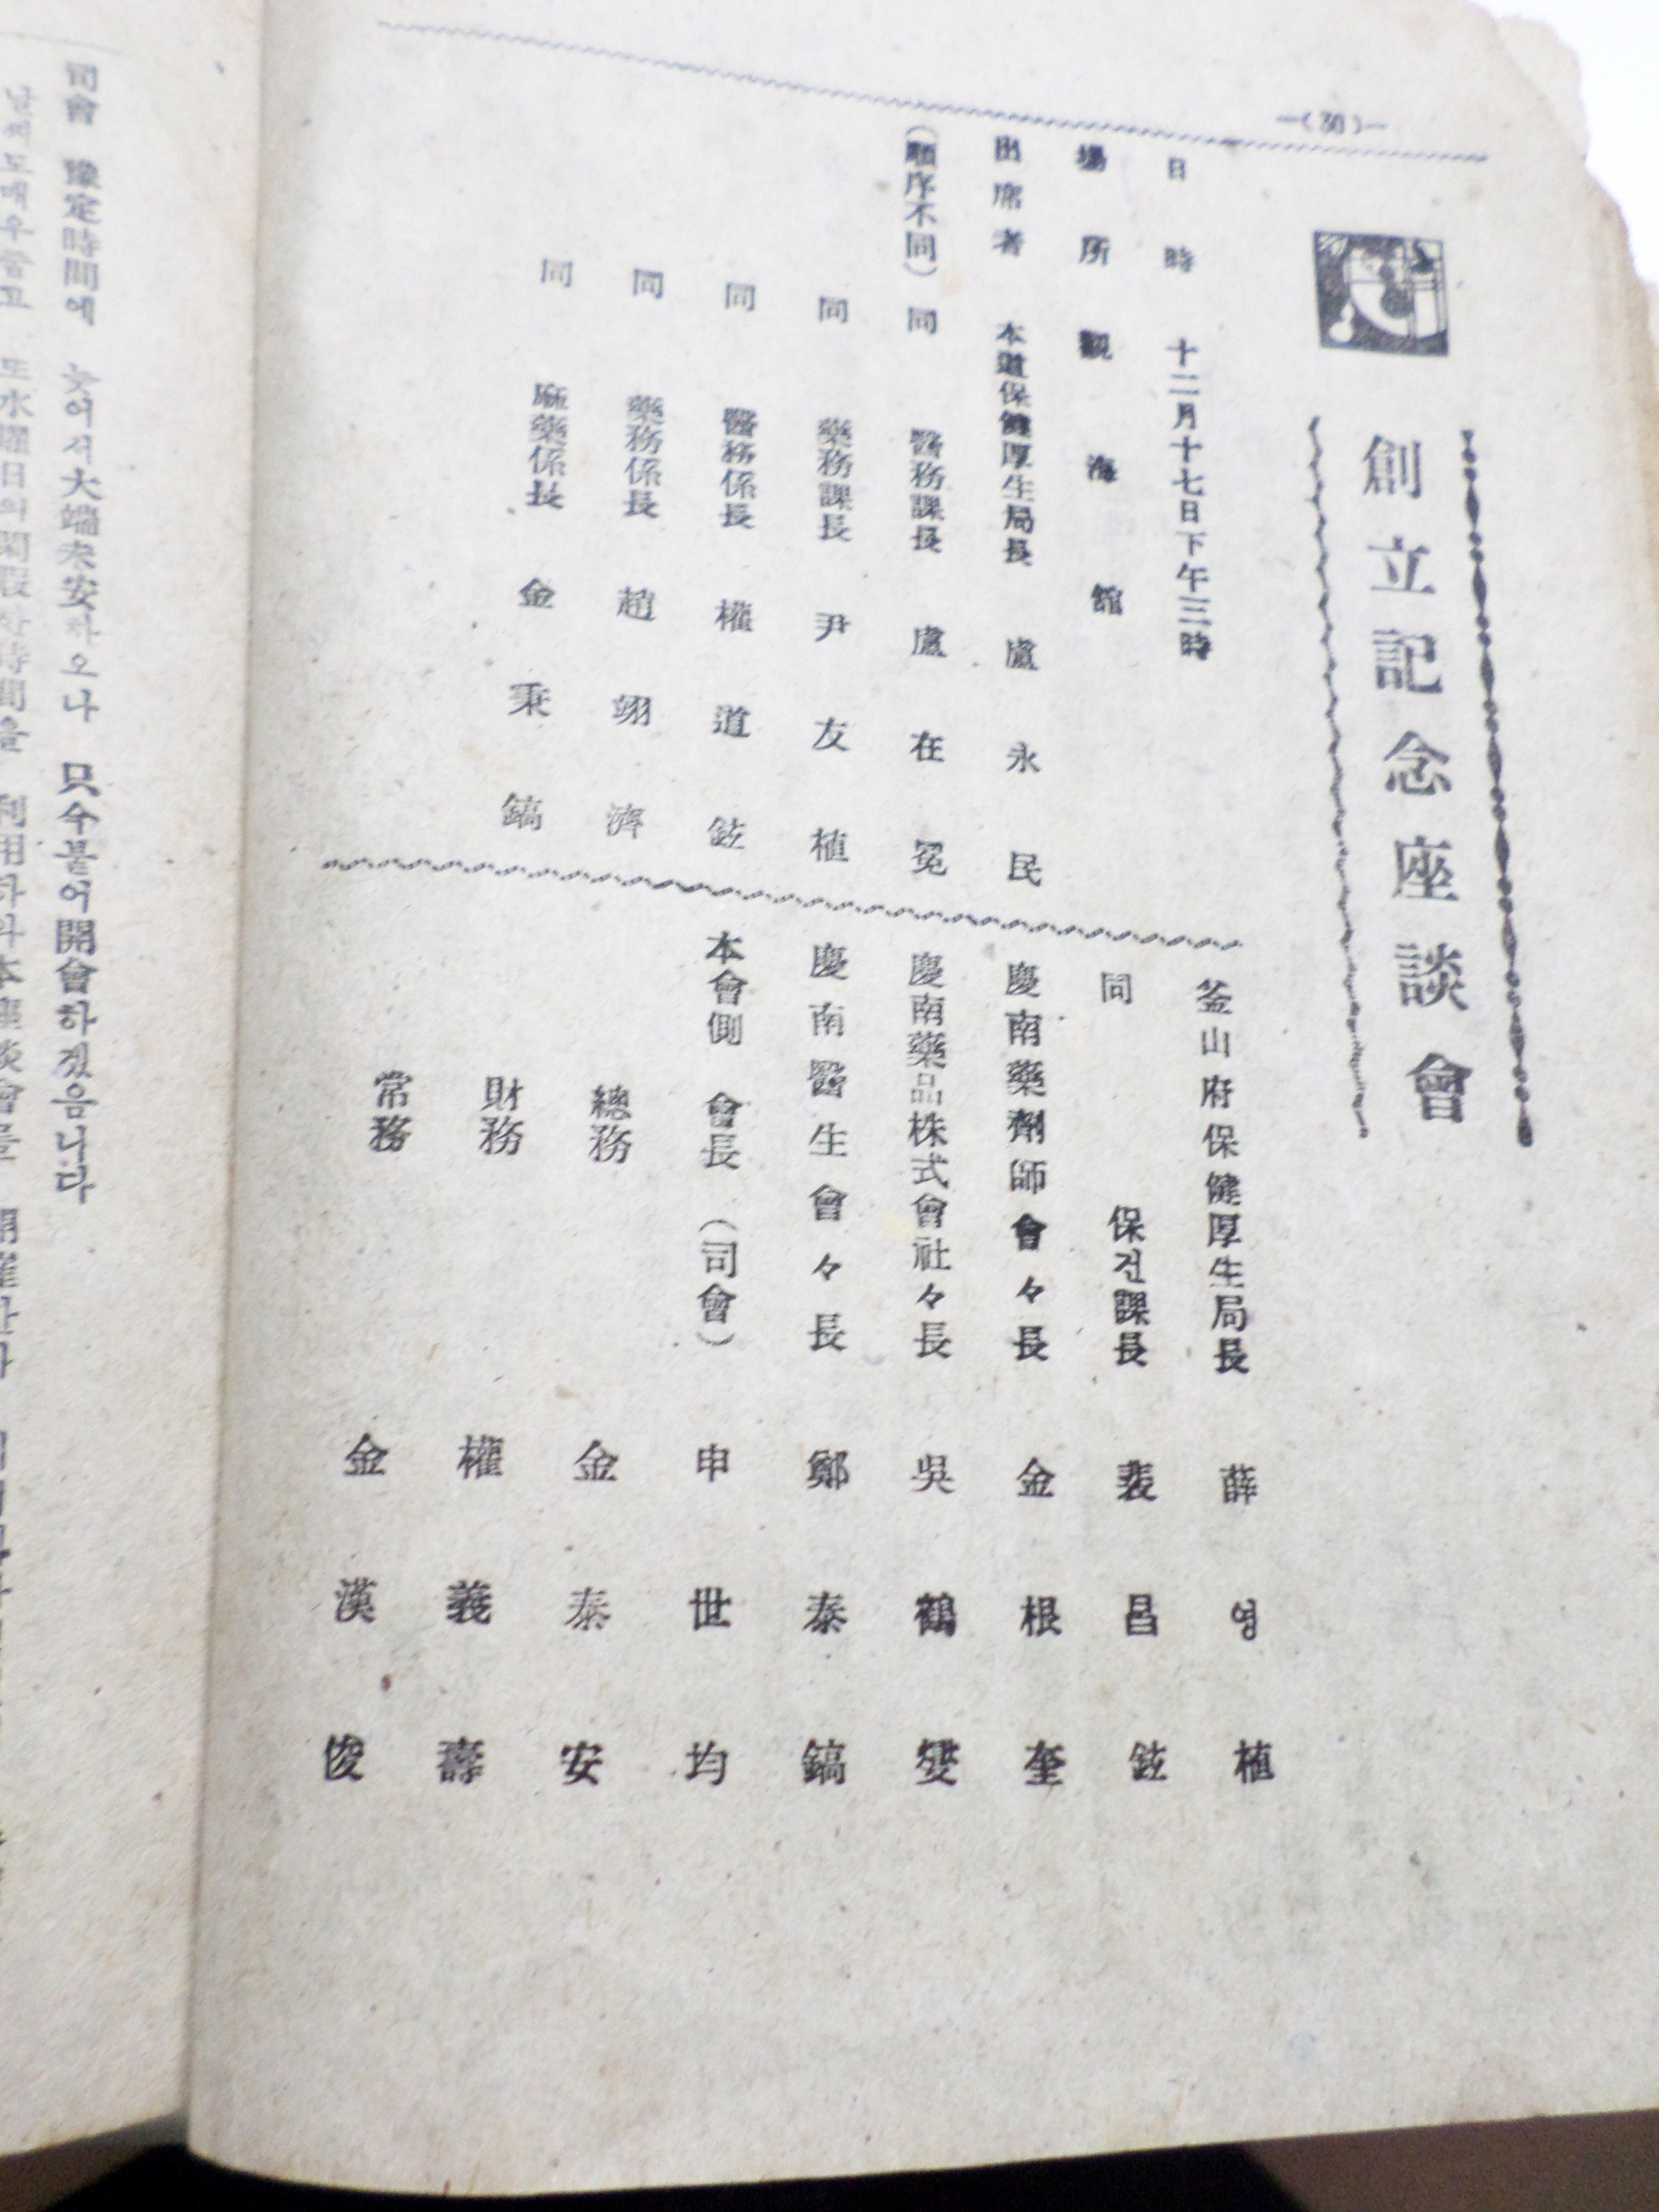 —( 30 )—
創立記念座談會
日時 十二月十七日下午三時
場所 觀海館
出席者 本道保健厚生局長 盧永民
(順序不同) 同 醫務課長 盧在冕
同 藥務課長 尹友植
同 醫務係長 權道鉉
同 藥務係長 趙翊濟
同 麻藥係長 金秉鎬
釜山府保健厚生局長 薛영植
同 保건課長 裵昌鉉
慶南藥劑師會々長 金根奎
慶南藥品株式會社々長 吳鶴燮
慶南醫生會々長 鄭泰鎬
本會側 會長 (司會) 申世均
總務 金泰安
財務 權義壽
常務 金漢俊
司會 豫定時間에 늦어서 大端未安하오나 只今붙어 開會하겠음니다